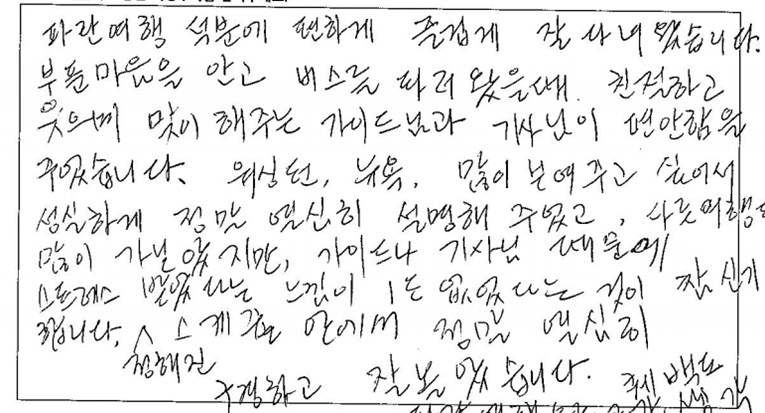 파란여행 석분에 편하게 즐겁게 잘 다녀 왔습니다.
부푼마음을 안고 버스를 타러 왔을때. 친절하고
웃으며 맞이 해주는 가이드님과 기사님이 편안함을
주었습니다. 워싱턴, 뉴욕, 많이 보여 주고 싶어서
성실하게 정말 열심히 설명해 주었고,
많이 가널 왔지만, 가이드나 기사님 때문에
스트레스 받았다는 느낌이 1도 없었다는 것이 참 신기
합니다. 스케쥴 안에서 정말 열심히
정해진
구경하고 잘 보았습니다.